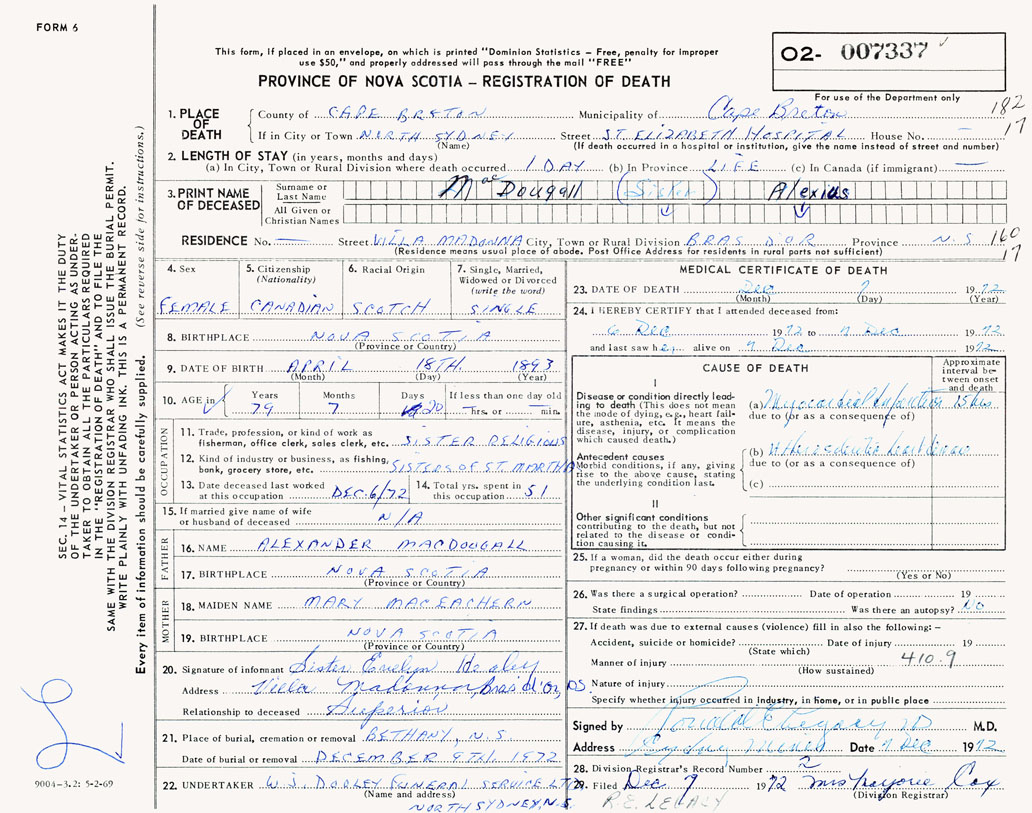 FORM 6
This form, if placed in an envelope, on which is printed "Dominion Statistics – Free, penalty for improper
use $50," and properly addressed will pass through the mail "FREE"
PROVINCE OF NOVA SCOTIA – REGISTRATION OF DEATH
O2- 007337
For use of the Department only
182
17
1. PLACE OF DEATH
County of CAPE BRETON Municipality of Cape Breton
If in City or Town NORTH SYDNEY Street ST. ELIZABETH HOSPITAL House No. —
(Name) (If death occurred in a hospital or institution, give the name instead of street and number)
2. LENGTH OF STAY (in years, months and days)
(a) In City, Town or Rural Division where death occurred 1 DAY (b) In Province LIFE (c) In Canada (if immigrant) —
3. PRINT NAME OF DECEASED
Surname or Last Name MacDougall (Sister) Alexius
All Given or Christian Names
RESIDENCE No. — Street VILLA MADONNA City, Town or Rural Division BRAS D'OR Province N.S
(Residence means usual place of abode. Post Office Address for residents in rural parts not sufficient)
160
17
4. Sex FEMALE
5. Citizenship (Nationality) CANADIAN
6. Racial Origin SCOTCH
7. Single, Married, Widowed or Divorced (write the word) SINGLE
8. BIRTHPLACE NOVA SCOTIA
(Province or Country)
9. DATE OF BIRTH APRIL 18TH. 1893
(Month) (Day) (Year)
10. AGE in Years 79 Months 7 Days 20 If less than one day old hrs. or min.
OCCUPATION
11. Trade, profession, or kind of work as
fisherman, office clerk, sales clerk, etc. SISTER RELIGIOUS
12. Kind of industry or business, as fishing,
bank, grocery store, etc. SISTERS OF ST. MARTHA
13. Date deceased last worked at this occupation DEC. 6/72
14. Total yrs. spent in this occupation 51
15. If married give name of wife
or husband of deceased N/A
FATHER
16. NAME ALEXANDER MACDOUGALL
17. BIRTHPLACE NOVA SCOTIA
(Province or Country)
MOTHER
18. MAIDEN NAME MARY MACEACHERN
19. BIRTHPLACE NOVA SCOTIA
(Province or Country)
20. Signature of informant Sister Evelyn
Address Villa Madonna Bras d'Or, NS.
Relationship to deceased Superior
21. Place of burial, cremation or removal BETHANY, N.S.
Date of burial or removal DECEMBER 9TH. 1972
22. UNDERTAKER W.J. DOOLEY FUNERAL SERVICE LTD
(Name and address)
NORTH SYDNEY, N.S.
MEDICAL CERTIFICATE OF DEATH
23. DATE OF DEATH Dec 7 1972
(Month) (Day) (Year)
24. I HEREBY CERTIFY that I attended deceased from:
6 Dec 1972 to 7 Dec 1972
and last saw her alive on 7 Dec 1972
CAUSE OF DEATH
Approximate interval between onset and death
I
Disease or condition directly leading to death (This does not mean the mode of dying, e.g., heart failure, asthenia, etc. It means the disease, injury, or complication which caused death.)
(a) Myocardial Infarction 15 hrs
due to (or as a consequence of)
Antecedent causes
Morbid conditions, if any, giving rise to the above cause, stating the underlying condition last.
(b) heart disease
due to (or as a consequence of)
(c)
II
Other significant conditions contributing to the death, but not related to the disease or condition causing it.
25. If a woman, did the death occur either during
pregnancy or within 90 days following pregnancy?
(Yes or No)
26. Was there a surgical operation? Date of operation 19
State findings Was there an autopsy? No
27. If death was due to external causes (violence) fill in also the following: –
Accident, suicide or homicide? Date of injury 19
(State which)
Manner of injury 410.9
(How sustained)
Nature of injury
Specify whether injury occurred in industry, in home, or in public place
Signed by M.D.
Address Sydney Mines Date 7 Dec 1972
28. Division Registrar's Record Number 2
29. Filed Dec 9 1972 Mrs Marjorie Cox
(Division Registrar)
R.E. LEGACY
SEC. 14 – VITAL STATISTICS ACT MAKES IT THE DUTY
OF THE UNDERTAKER OR PERSON ACTING AS UNDER-
TAKER TO OBTAIN ALL THE PARTICULARS REQUIRED
IN THE "REGISTRATION OF DEATH" AND TO FILE THE
SAME WITH THE DIVISION REGISTRAR WHO SHALL ISSUE THE BURIAL PERMIT.
WRITE PLAINLY WITH UNFADING INK. THIS IS A PERMANENT RECORD.
Every item of information should be carefully supplied. (See reverse side for instructions.)
9004-3.2: 5-2-69